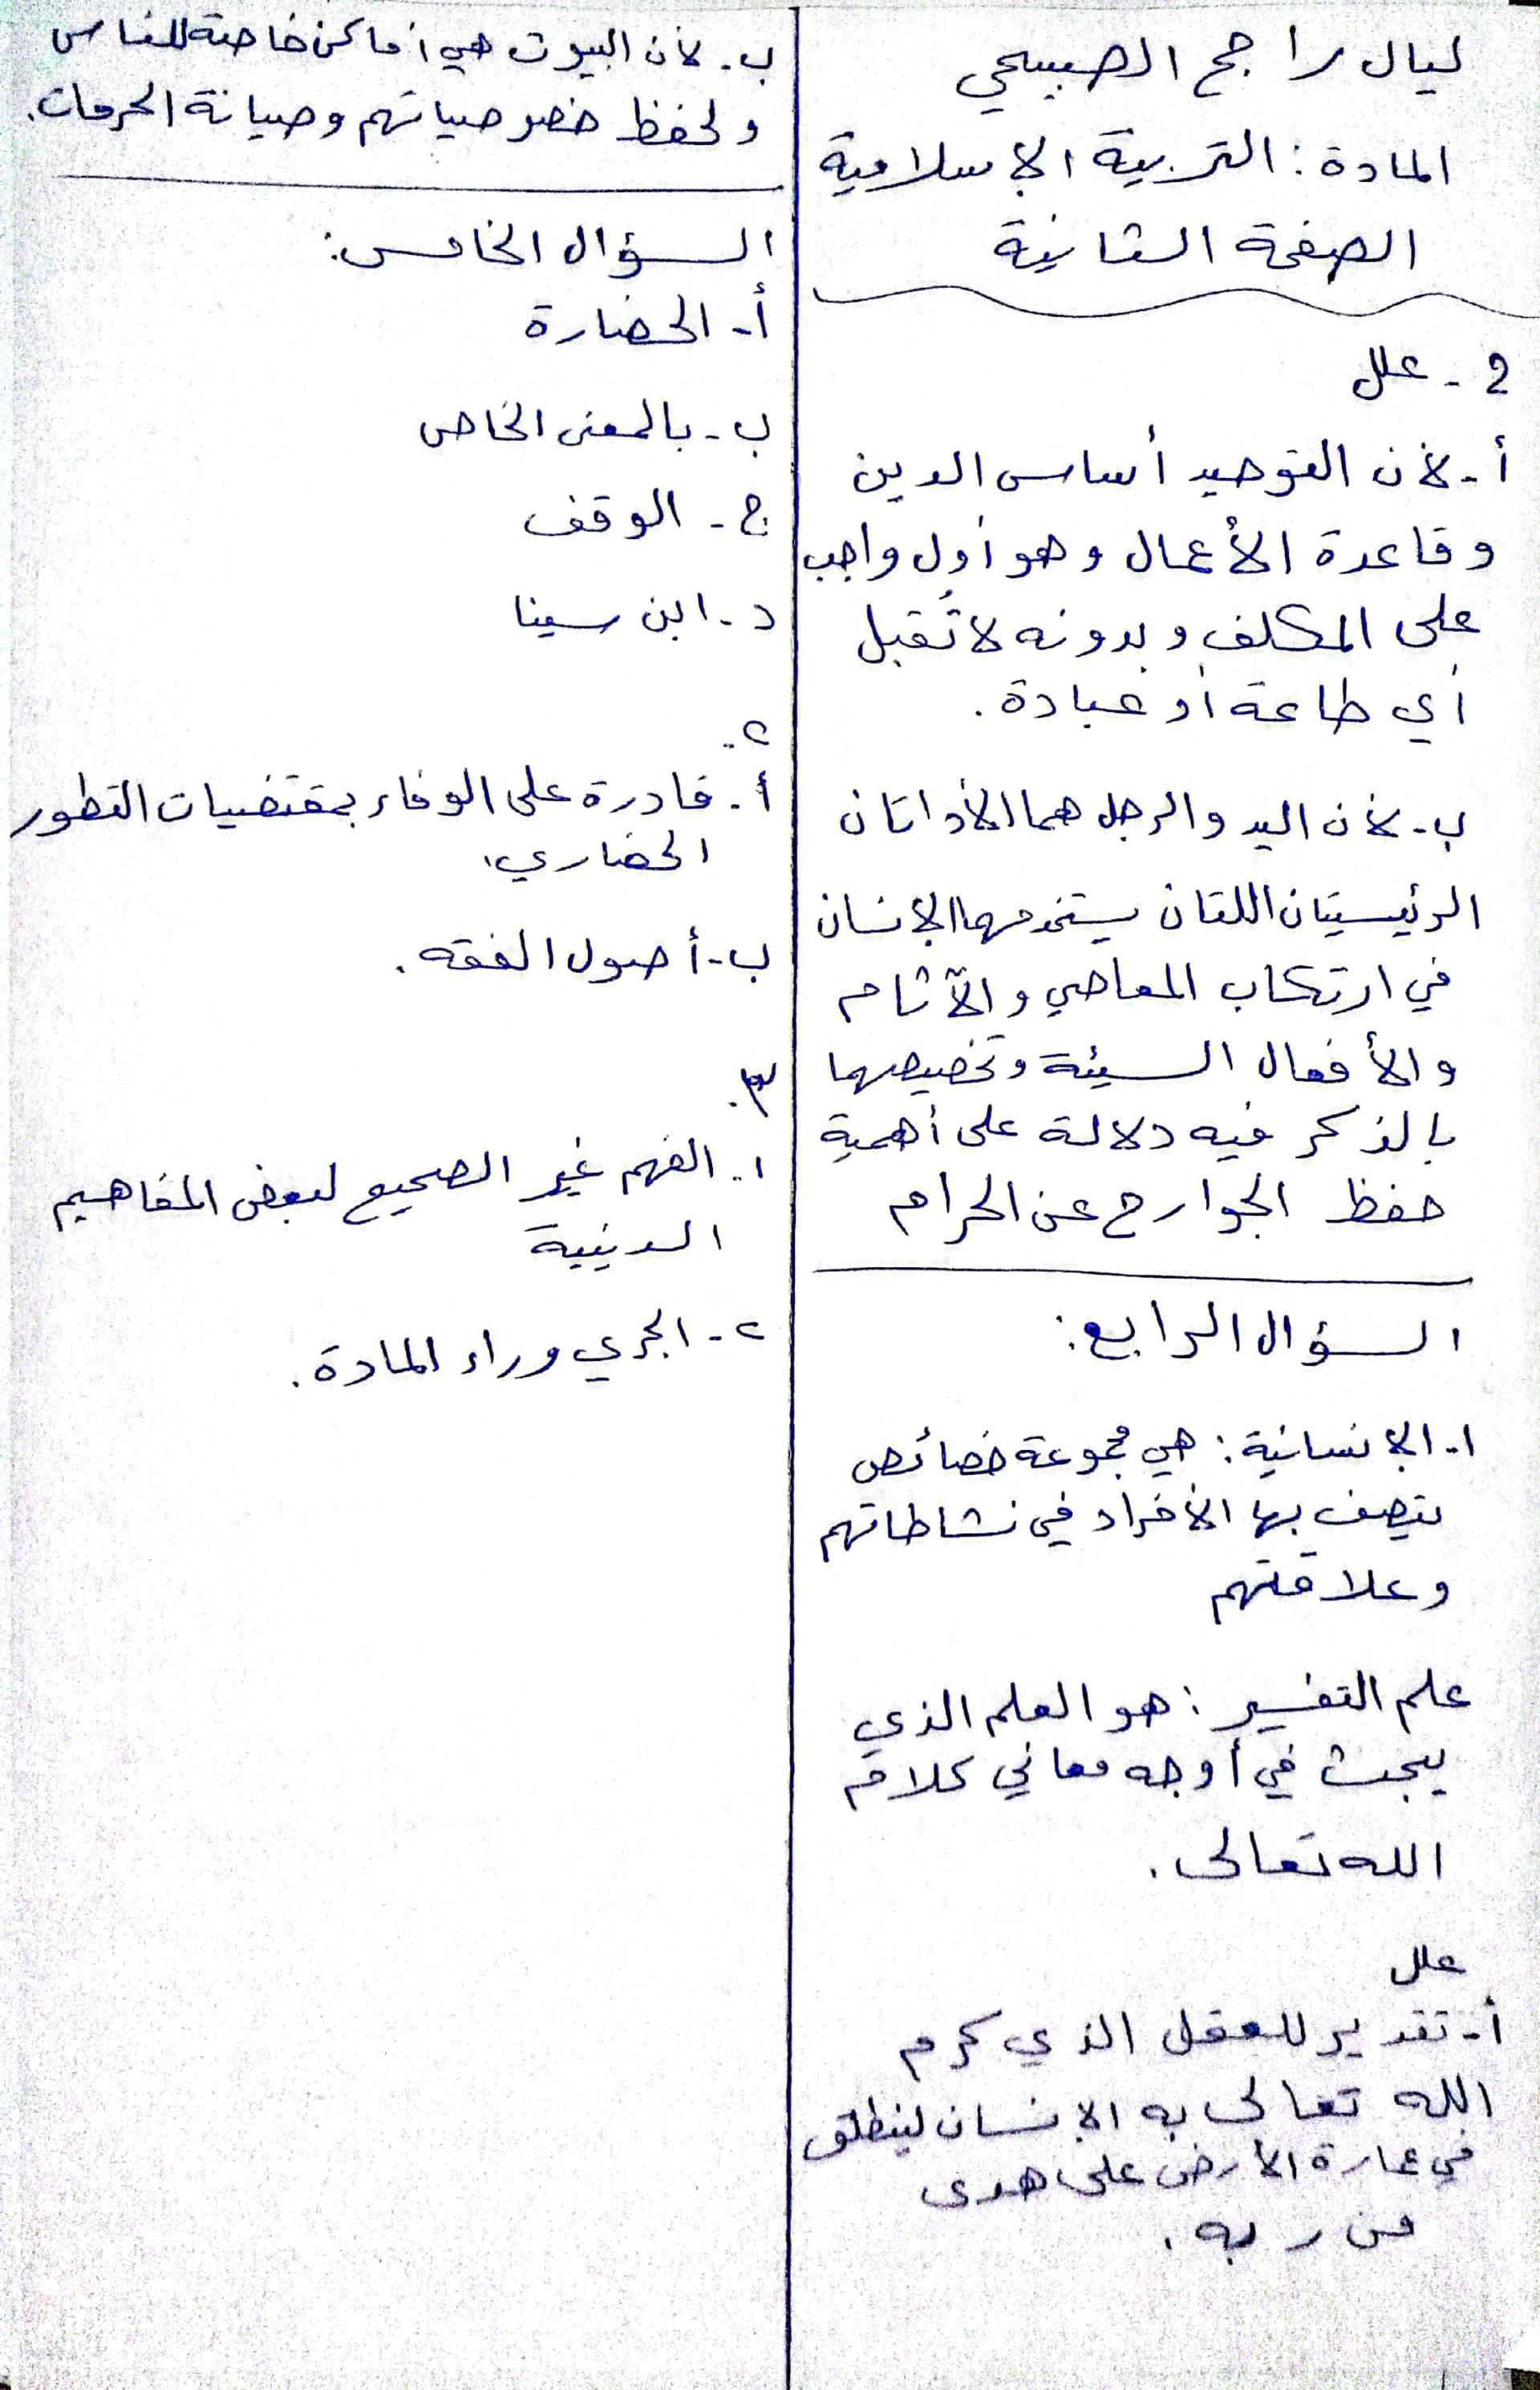 ليال راجح الصبيحي
المادة: التربية الإسلامية
الصفحة الثانية
2 - علل
أ- لأن التوحيد أساس الدين
وقاعدة الأعمال وهو أول واجب
على المكلف وبدونه لا تُقبل
أي طاعة أو عبادة.
ب- لأن اليد والرجل هما الأداتان
الرئيسيتان اللتان يستخدمهما الإنسان
في ارتكاب المعاصي والآثام
والأفعال السيئة وتخصيصهما
بالذكر فيه دلالة على أهمية
حفظ الجوارح عن الحرام
السؤال الرابع:
١- الإنسانية: هي مجموعة خصائص
يتصف بها الأفراد في نشاطاتهم
وعلاقتهم
علم التفسير: هو العلم الذي
يبحث في أوجه معاني كلام
الله تعالى.
علل
أ- تقدير للعقل الذي كرم
الله تعالى به الإنسان لينطلق
في عمارة الأرض على هدى
من ربه.
ب- لأن البيوت هي أماكن خاصة للناس
ولحفظ خصوصياتهم وصيانة الحرمات.
السؤال الخامس:
أ- الحضارة
ب- بالمعنى الخاص
ج- الوقف
د- ابن سينا
٢.
أ- قادرة على الوفاء بمقتضيات التطور
الحضاري.
ب- أصول الفقه.
٣.
١. الفهم غير الصحيح لبعض المفاهيم
الدينية
٢- الجري وراء المادة.